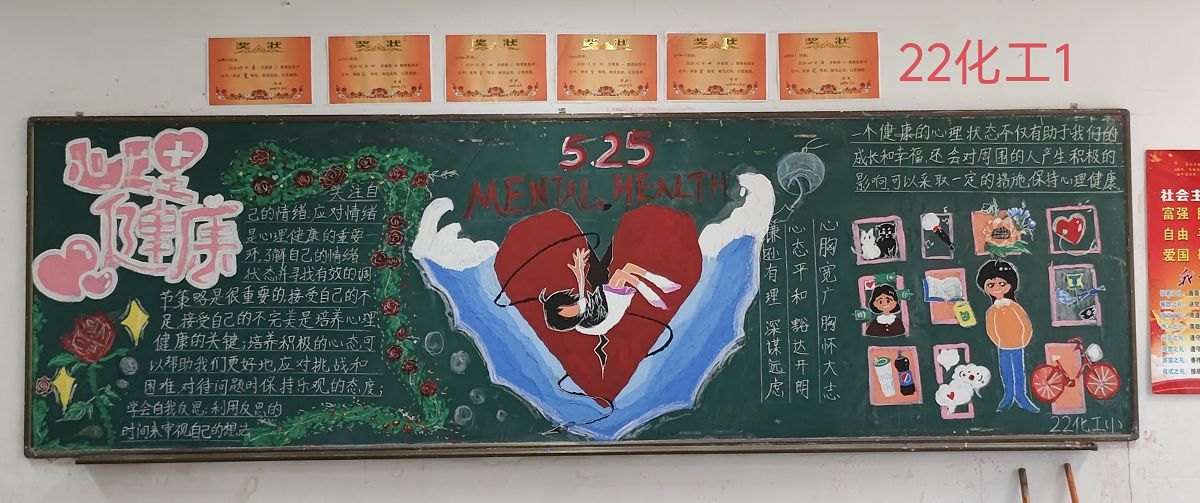 奖状
奖状
奖状
奖状
奖状
奖状
22化工1
心理
健康
关注自
己的情绪:应对情绪
是心理健康的重要一
环,了解自己的情绪
状态并寻找有效的调
节策略是很重要的.接受自己的不
足,接受自己的不完美是培养心理
健康的关键;培养积极的心态,可
以帮助我们更好地应对挑战和
困难.对待问题时保持乐观的态度;
学会自我反思:利用反思的
时间来审视自己的想法
5.25
MENTAL HEALTH
心胸宽广 胸怀大志
心态平和 豁达开朗
有理 深谋远虑
一个健康的心理状态不仅有助于我们的
成长和幸福,还会对周围的人产生积极的
影响.可以采取一定的措施,保持心理健康
22化工(1)
社会主
富强
自由
爱国